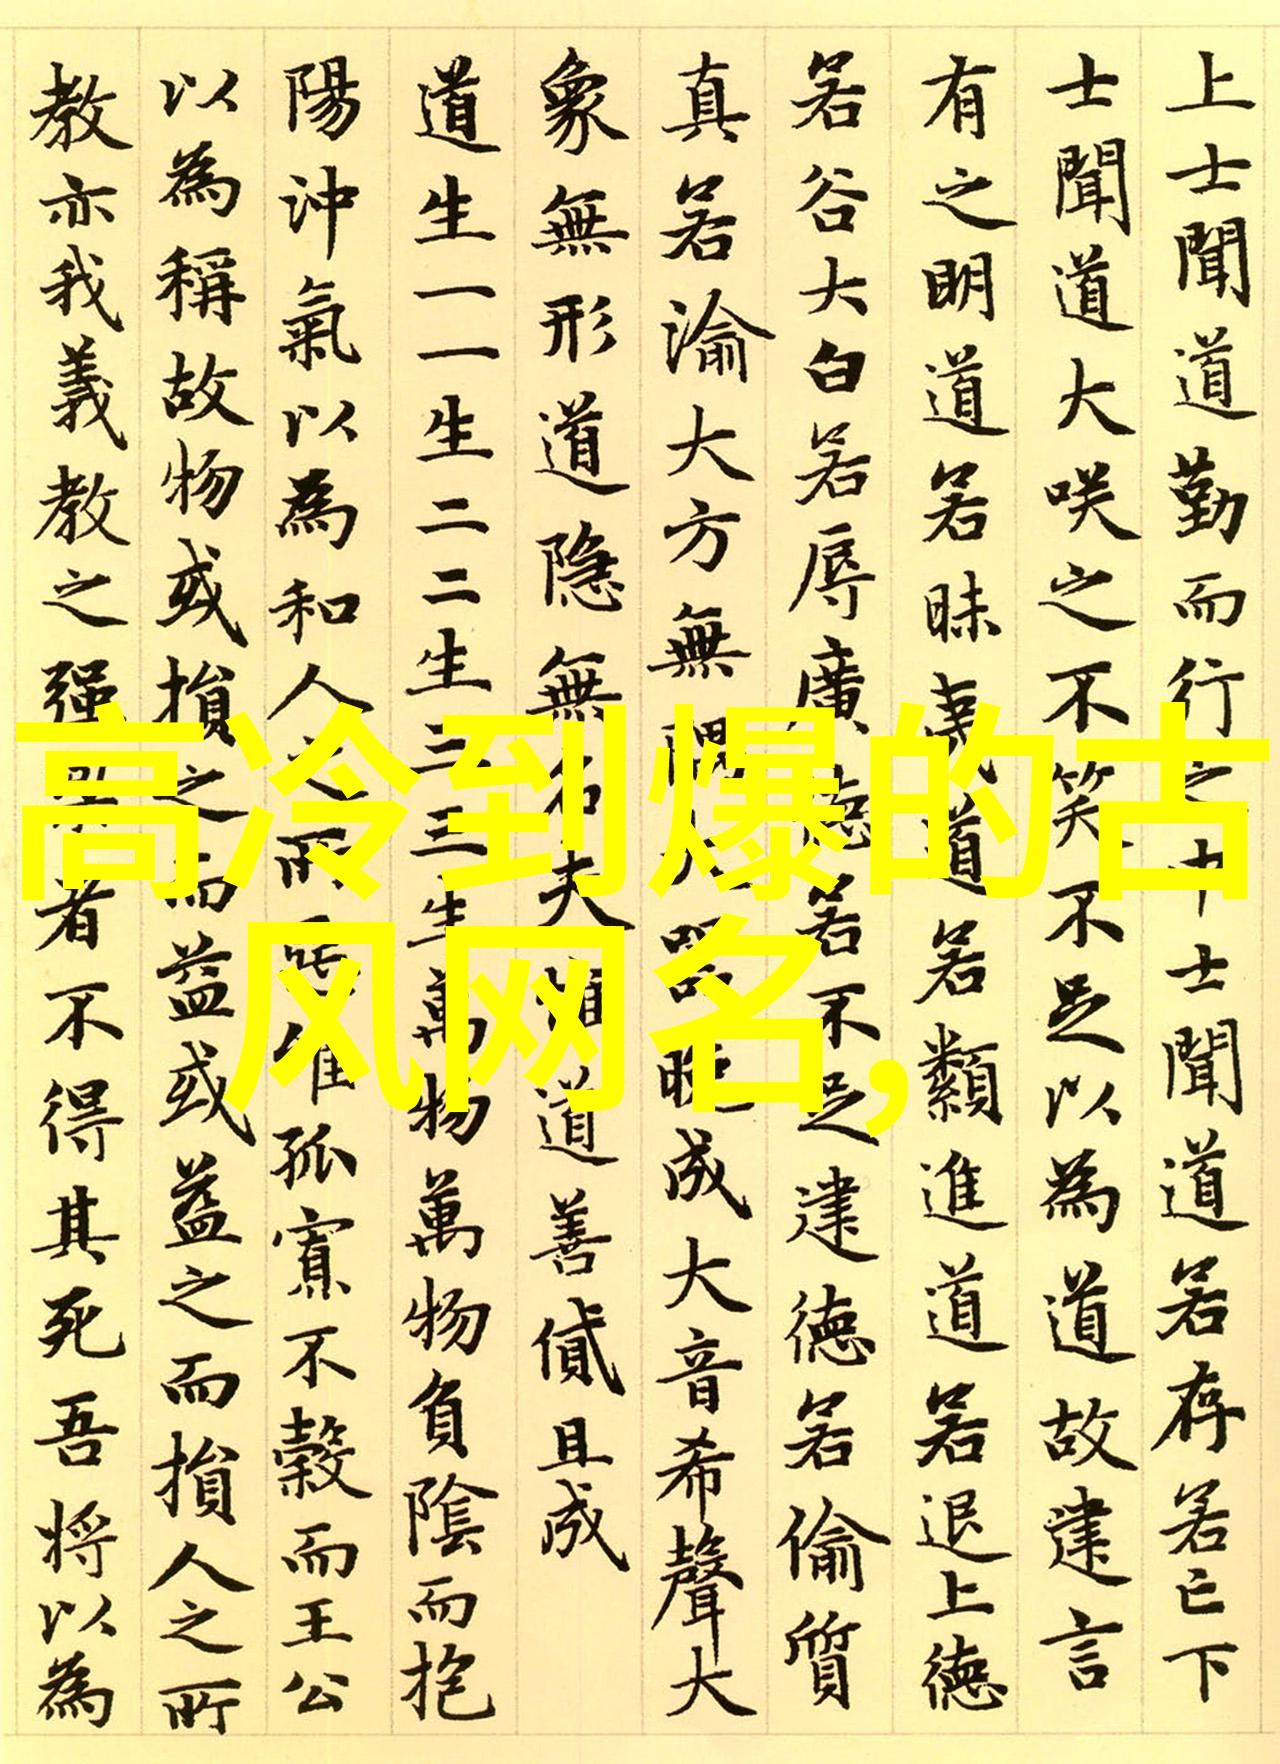 上士聞道勤而行之中士聞道若存若亡下
士聞道大咲之不笑不足以為道故建言
有之明道若昧夷道若纇進道若退上德
若谷大白若辱廣德若不足建德若偷質
真若渝大方無隅大器晚成大音希聲大
象無形道隐無名夫惟道善貸且成
道生一一生二二生三三生萬物萬物負陰而抱
陽沖氣以為和人之所惡惟孤寡不穀而王公
以為稱故物或損之而益或益之而損人之所
教亦我義教之强梁者不得其死吾将以為
高冷到爆的古
风网名,